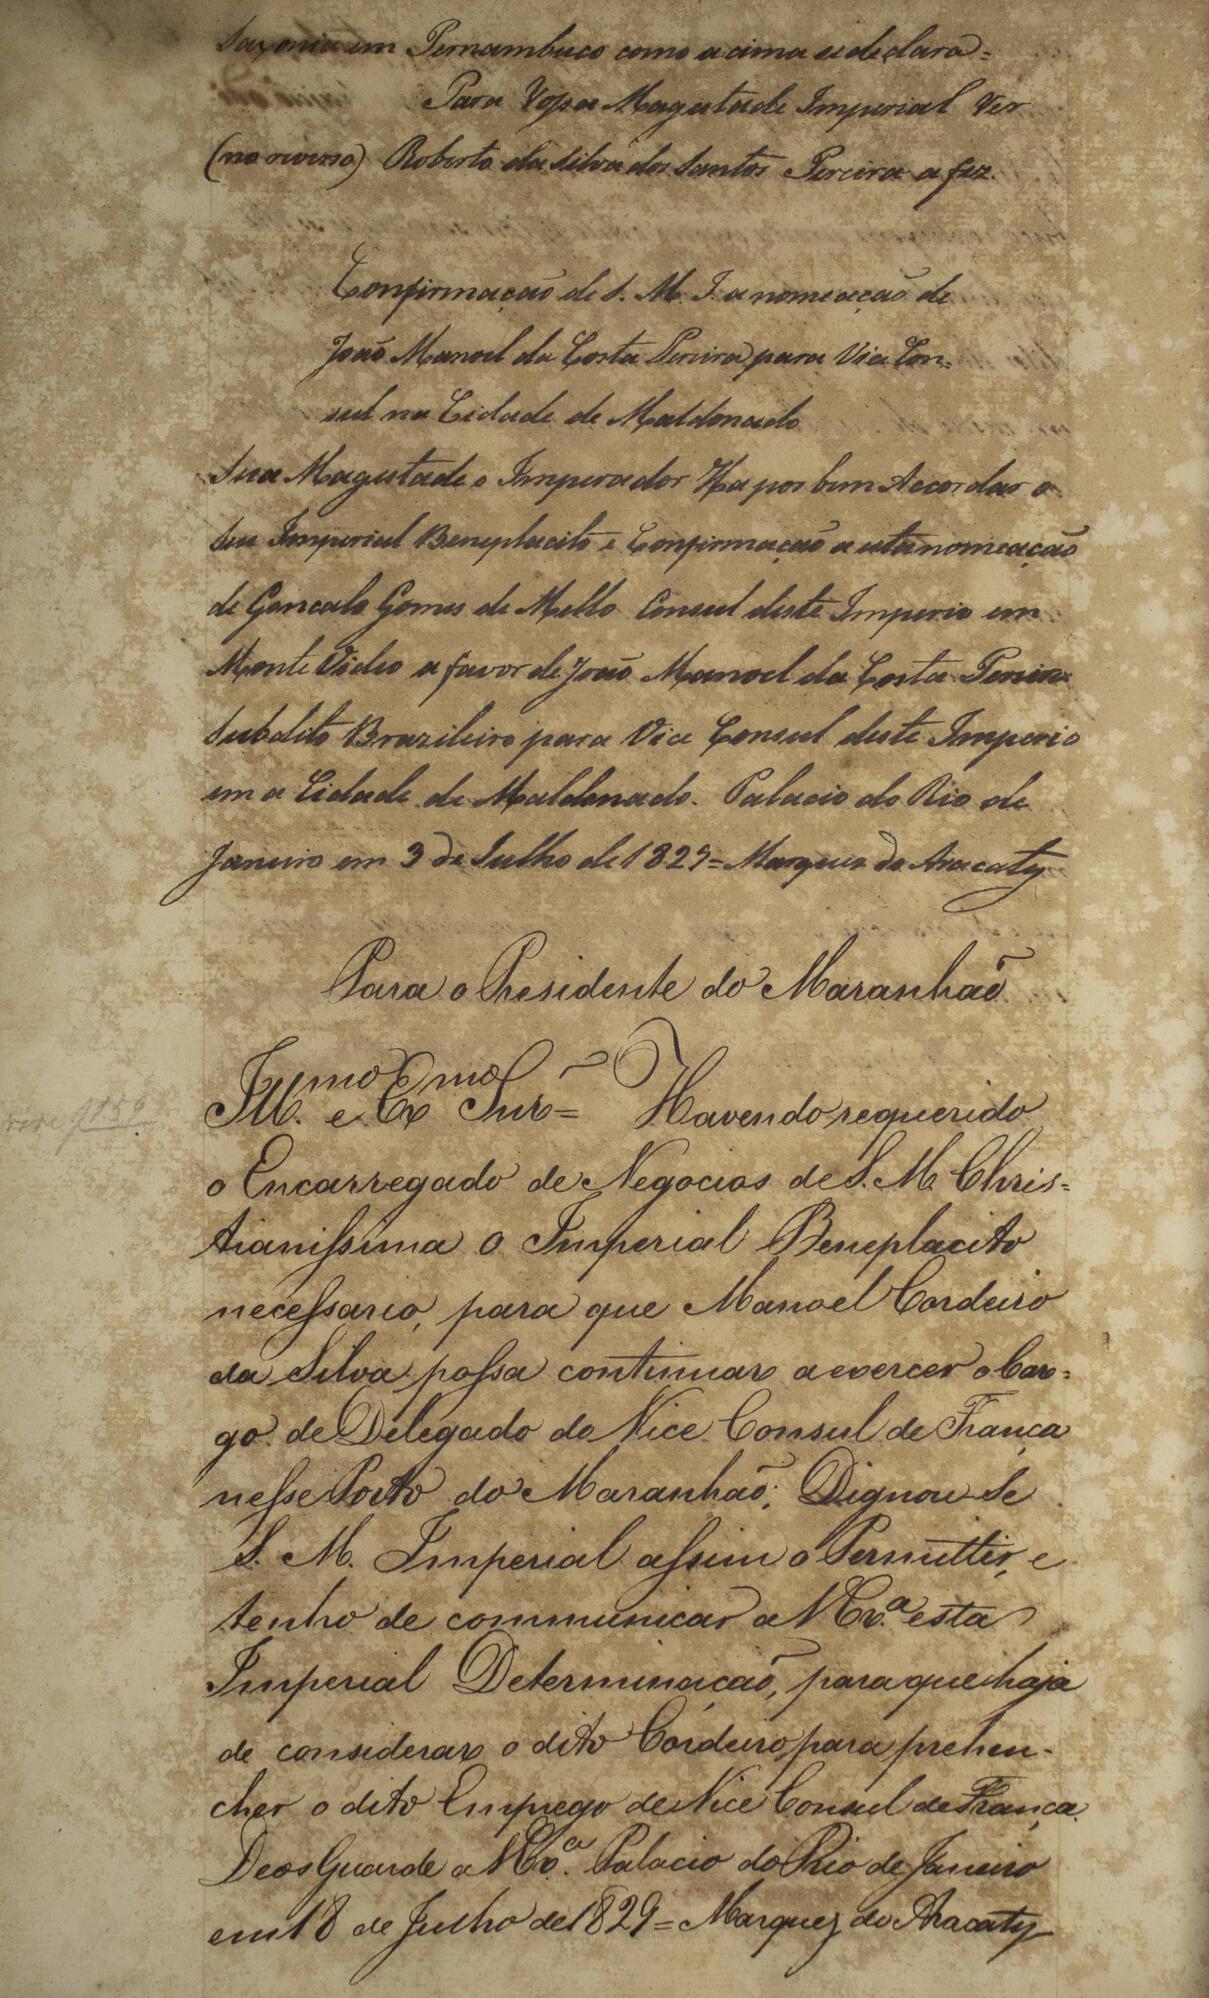 Saxonia em Pernambuco como acima se declara=
Para Vossa Magestade Imperial Ver
(no reverso) Roberto da Silva dos Santos Pereira a fez.
Confirmação de S. M. I. a nomeação de
João Manoel da Costa Pereira para Vice Con=
sul na Cidade de Maldonado
Sua Magestade o Imperador Ha por bem Accordar o
Seu Imperial Beneplacito e Confirmação a esta nomeação
de Goncalo Gomes de Mello Consul deste Imperio em
Monte Vidio a favor de João Manoel da Costa Pereira
Subdito Brazileiro para Vice Consul deste Imperio
em a Cidade de Maldonado. Palacio do Rio de
Janeiro em 3 de Julho de 1829= Marquez do Aracaty
Para o Presidente do Maranhão
Ill.mo e Ex.mo Snr= Havendo requerido
o Encarregado de Negocios de S. M. Chris=
tianissima o Imperial Beneplacito
necessario, para que Manoel Cordeiro
da Silva possa continuar a exercer o Car=
go de Delegado do Vice Consul de França
nesse Porto do Maranhão; Dignou-Se
S. M. Imperial assim o Permittir, e
tenho de communicar a V Ex.a esta
Imperial Determinação, para que haja
de considerar o dito Cordeiro para prehen-
cher o dito Emprego de Vice Consul de França.
Deos Guarde a V Ex.a Palacio do Rio de Janeiro
em 18 de Julho de 1829= Marquez do Aracaty